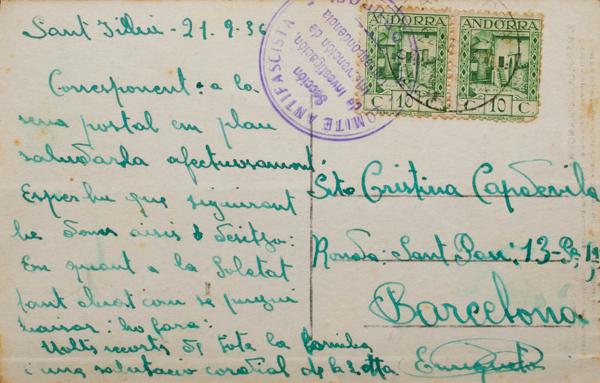 Sant Julià - 21.9.36
Corresponent a la
seva postal em plau
saludarla afectuosament.
Espero que seguirant
be doncs aixis o desitzo:
En quant a la Soletat
tant aviat com se pugui
: ho fara:
Molts recorts de tota la familia
i una salutacio cordial de la
Enriqueta
COMITE ANTIFASCISTA
Sección
de Investigación,
ANDORRA
10 C
ANDORRA
10 C
Sta Cristina Capdevila
Ronda: Sant Pau: 13-
Barcelona